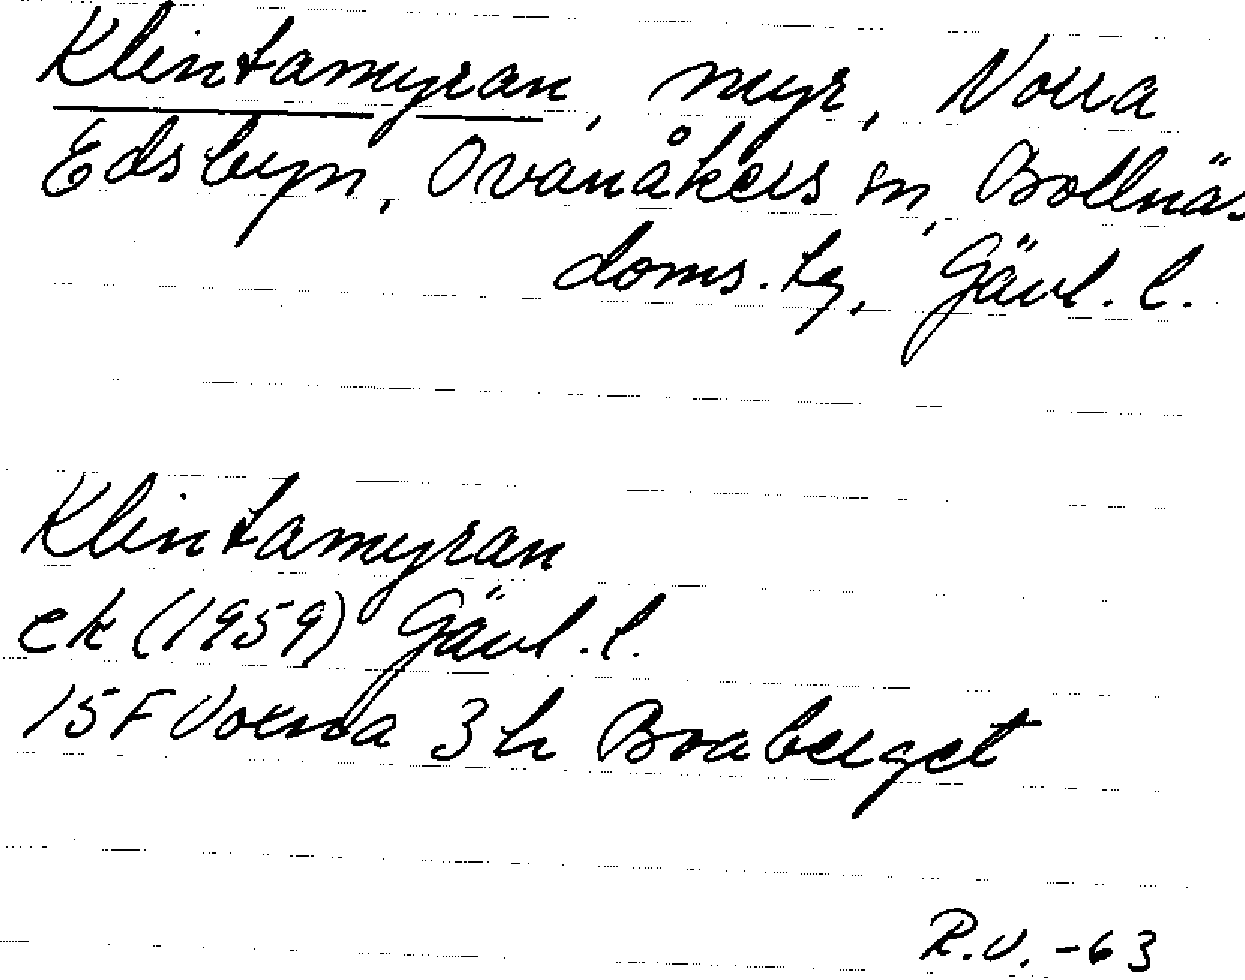 Klintamyran, myr, Norra
Edsbyn, Ovanåkers sn, Bollnäs
doms. tg, Gävl. l.
Klintamyran
ek (1959) Gävl. l.
15F Voxna 3h Boaberget
R.V. -63